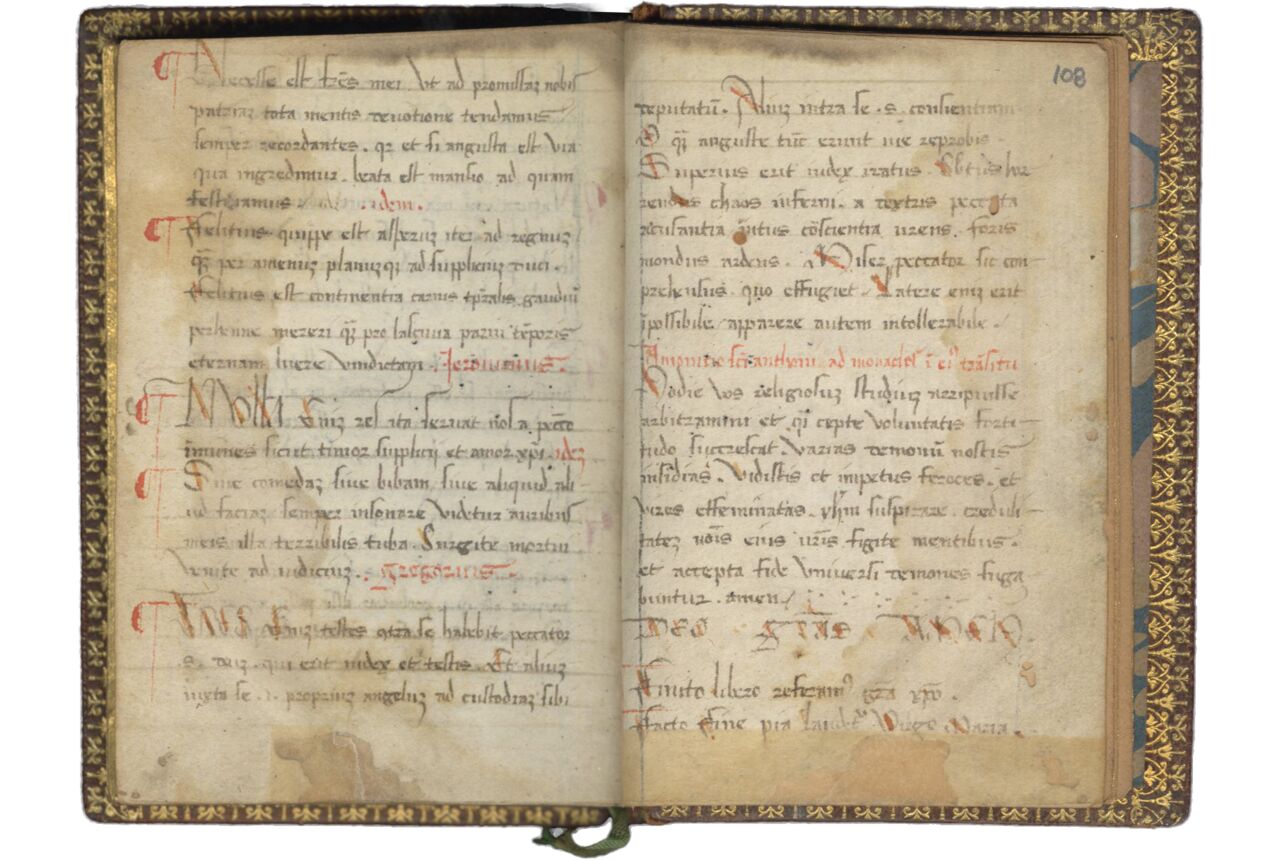 Necesse est fr̄es mei vt ad promissaꝫ nobis
patriaꝫ tota mentis deuotione tendamus
semꝑ recordantes . qꝫ et si angusta est via
qua ingredimur . beata est mansio ad quam
festinamus . idem .
Felitius quippe est asperuꝫ iter ad regnuꝫ
qꝫ per amenuꝫ planuꝫqꝫ ad suppliciuꝫ duci .
Felitius est continentia carnis tp̄ralis gaudiū
perhenne mereri qꝫ pro lasciuia parui tēporis
eternam luere vindictam . Jeronimus .
Nvlla Eniꝫ res ita seruat nos a pctō
īmunes sicut timor supplicij et amor xp̄i . ideꝫ
Siue comedaꝫ siue bibam siue aliquid ali
ud faciaꝫ semper insonare videtur auribus
meis illa terribilis tuba . Surgite mortui
venite ad iudiciuꝫ . Gregorius .
Eniꝫ testes ꝯtra se habebit peccator
.s. deuꝫ . qui erit iudex et testis . Et aliuꝫ
iuxta se .i. propriuꝫ angeluꝫ ad custodiaꝫ sibi
108
deputatū . Aliuꝫ intra se .s. consientiam
O qꝫ anguste tūc erunt uie reprobis .
Superius erit iudex iratus . Subtus hor
rendus chaos inferni . a dextris peccata
acusantia īntus cōscientia urens . foris
mondus ardens . Miser peccator sic con
prehensus quo effugiet . Latere eniꝫ erit
īpossibile . apparere autem intollerabile .
Amonitio sc̄i anthonii ad monachos ī ei' trāsitu
Hodie vos religiosuꝫ studiuꝫ arripuisse
arbitramini et qͣ cepte voluntatis forti
tudo succrescat . Varias demonū nostis
insidias . Vidistis et inpetus feroces . et
vires effeminatas . yh̄m suspirare . creduli
tateꝫ nōis eius vr̄is figite mentibus .
et accepta fide vniuersi demones fuga
buntur . amen
DEO GRĀS AMEN .
Finito libro referam' gr̄a xp̄o .
Facto Fine pia laudet' Virgo Maria .